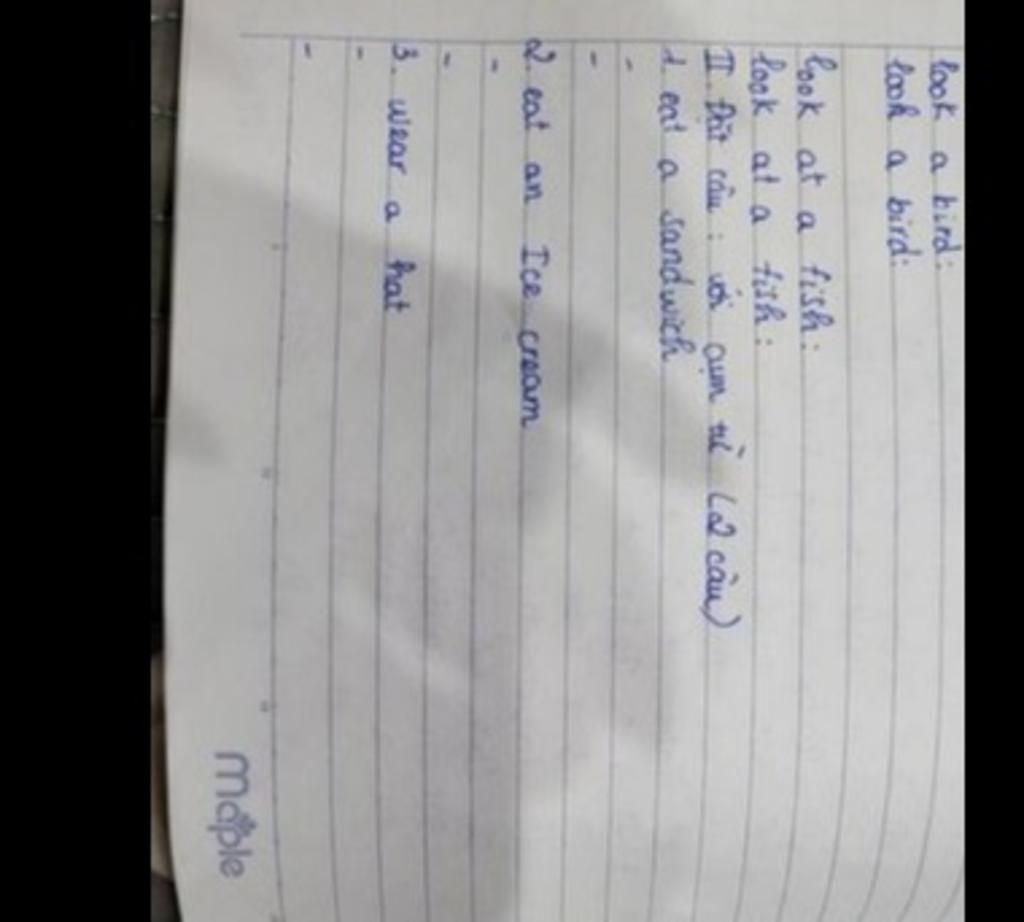 look a bird:
look a bird:
look at a fish:
look at a fish:
II. Đặt câu: với cụm từ (2 câu)
1. eat a sandwich
-
-
2. eat an Ice cream
-
-
3. wear a hat
-
-
maple